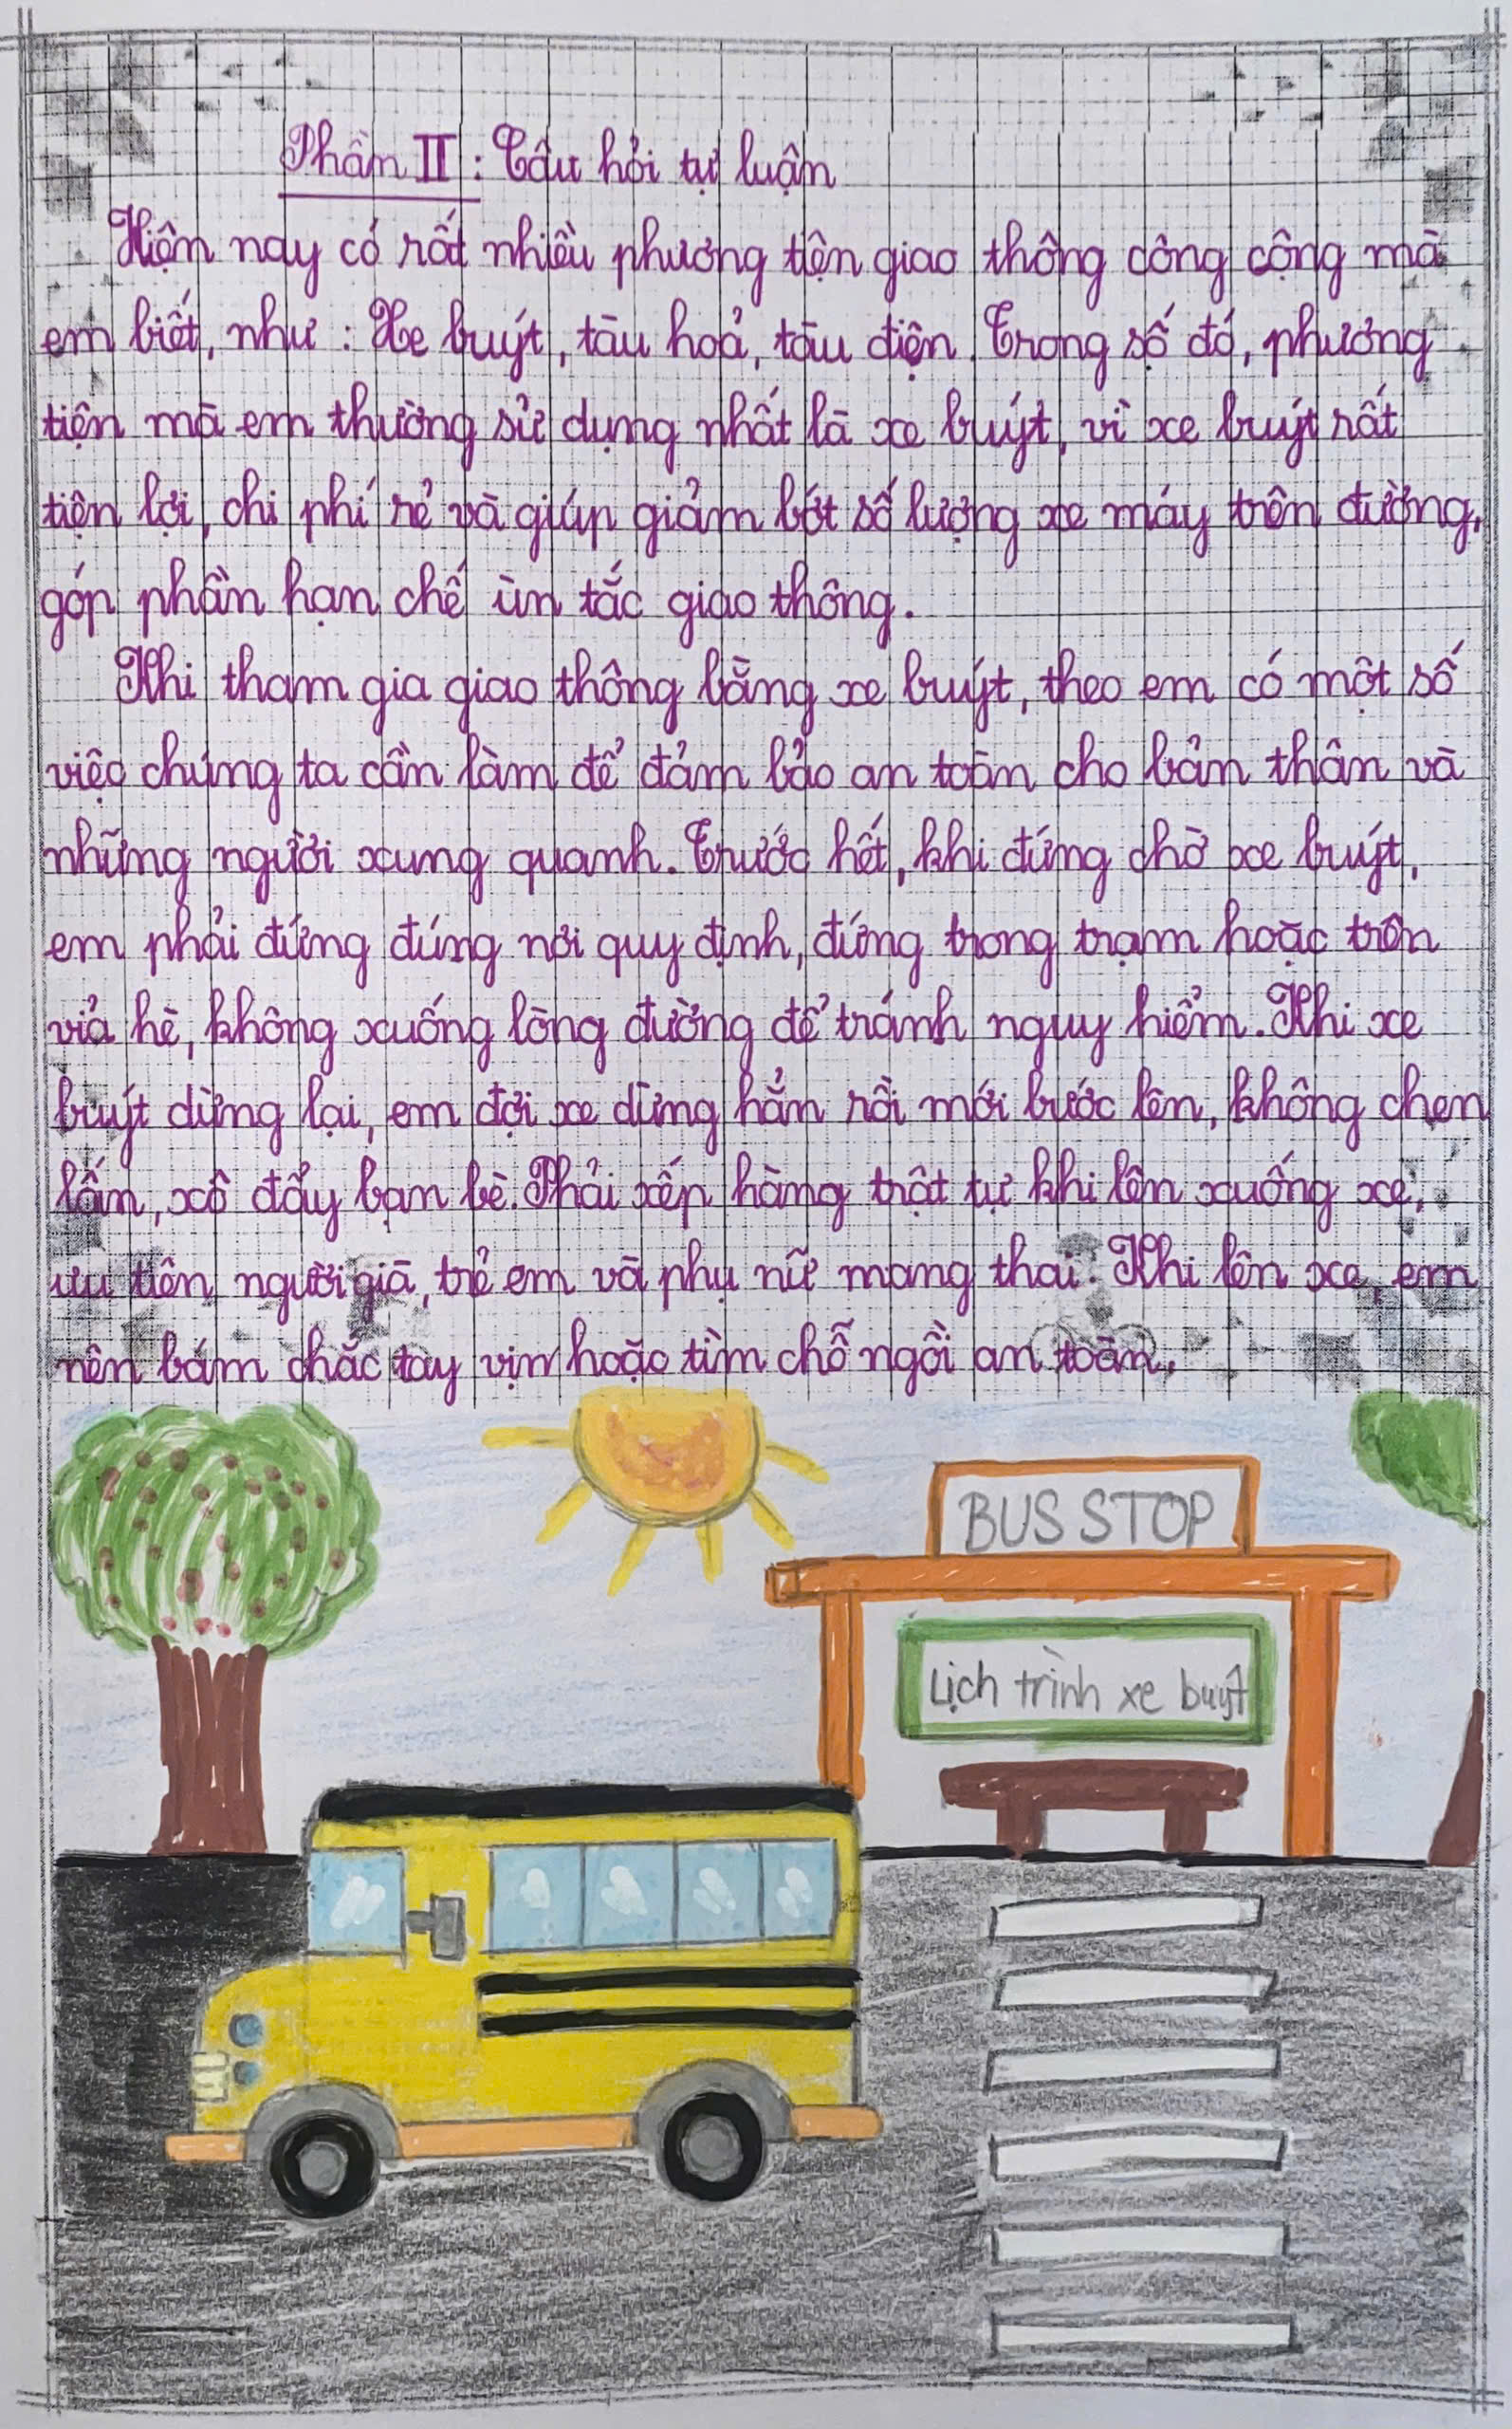 Phần II : Câu hỏi tự luận
Hiện nay có rất nhiều phương tiện giao thông công cộng mà
em biết, như : Xe buýt, tàu hoả, tàu điện. Trong số đó, phương
tiện mà em thường sử dụng nhất là xe buýt, vì xe buýt rất
tiện lợi, chi phí rẻ và giúp giảm bớt số lượng xe máy trên đường,
góp phần hạn chế ùn tắc giao thông.
Khi tham gia giao thông bằng xe buýt, theo em có một số
việc chúng ta cần làm để đảm bảo an toàn cho bản thân và
những người xung quanh. Trước hết, khi đứng chờ xe buýt,
em phải đứng đúng nơi quy định, đứng trong trạm hoặc trên
vỉa hè, không xuống lòng đường để tránh nguy hiểm. Khi xe
buýt dừng lại, em đợi xe dừng hẳn rồi mới bước lên, không chen
lấn, xô đẩy bạn bè. Phải xếp hàng trật tự khi lên xuống xe,
ưu tiên người già, trẻ em và phụ nữ mang thai. Khi lên xe, em
nên bám chắc tay vịn hoặc tìm chỗ ngồi an toàn.
BUS STOP
Lịch trình xe buýt